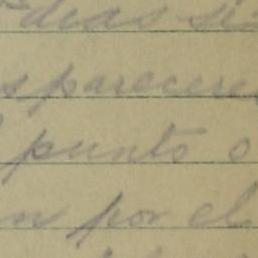 deas si
s parecere
punto o
n por el